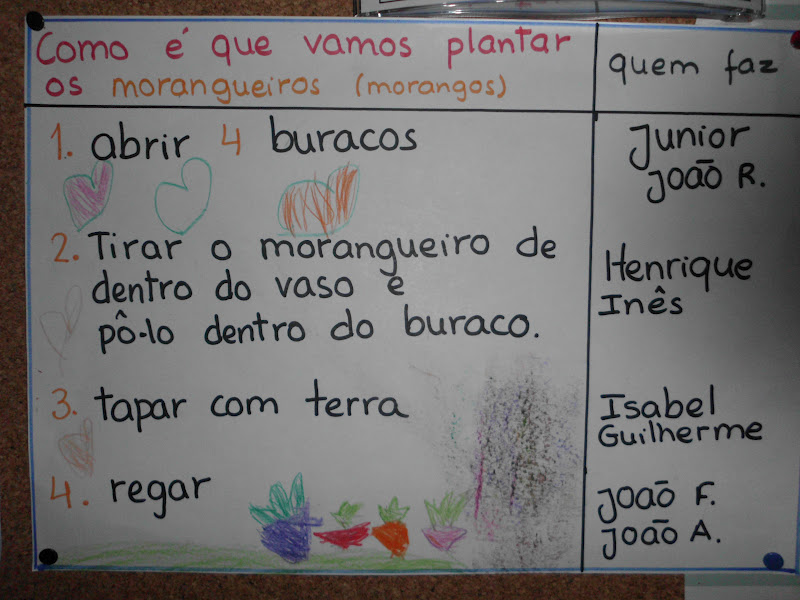 Como é que vamos plantar
os morangueiros (morangos)
quem faz
1. abrir 4 buracos
Junior
João R.
2. Tirar o morangueiro de
dentro do vaso e
pô-lo dentro do buraco.
Henrique
Inês
3. tapar com terra
Isabel
Guilherme
4. regar
João F.
João A.